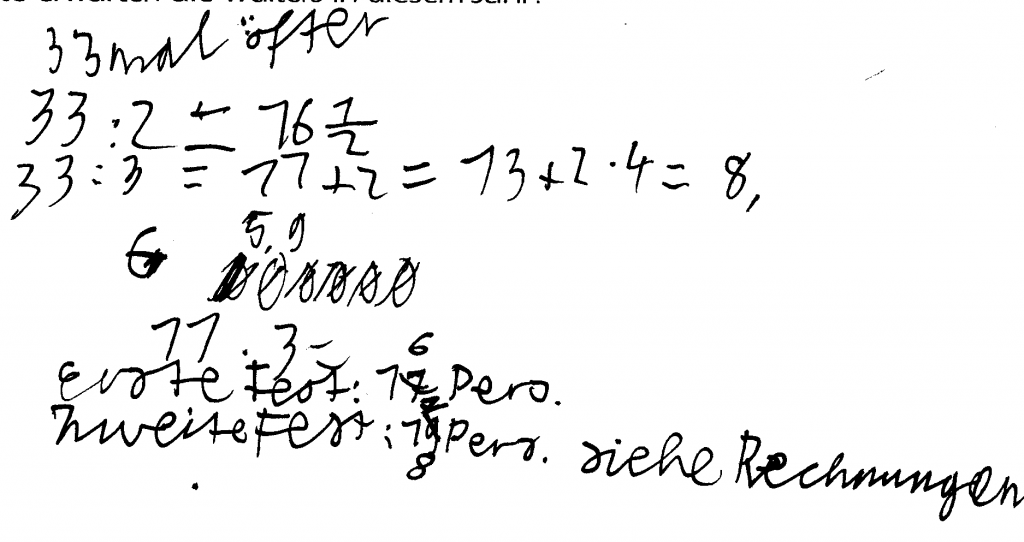 te erwarten die Walters in diesem Jahr?
33 mal öfter
33 : 2 = 16 1/2
33 : 3 = 11 + 2 = 13 + 2 · 4 = 8,
6 5,9
11 · 3 =
Erste Fest: 16 Pers.
Zweite Fest: 18 Pers. siehe Rechnungen